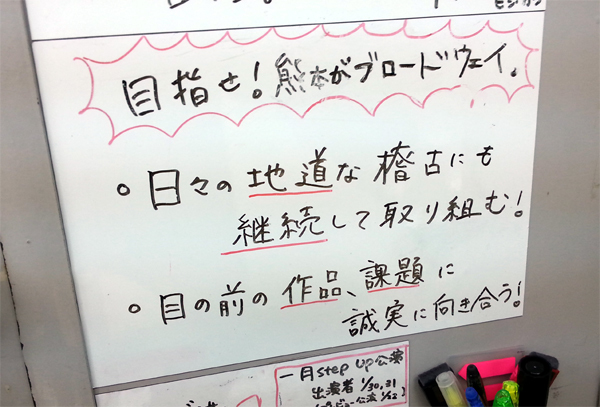 目指せ!熊本がブロードウェイ。
。日々の地道な稽古にも
継続して取り組む!
。目の前の作品、課題に
誠実に向き合う!
一月step up公演
出演者 1/30,31